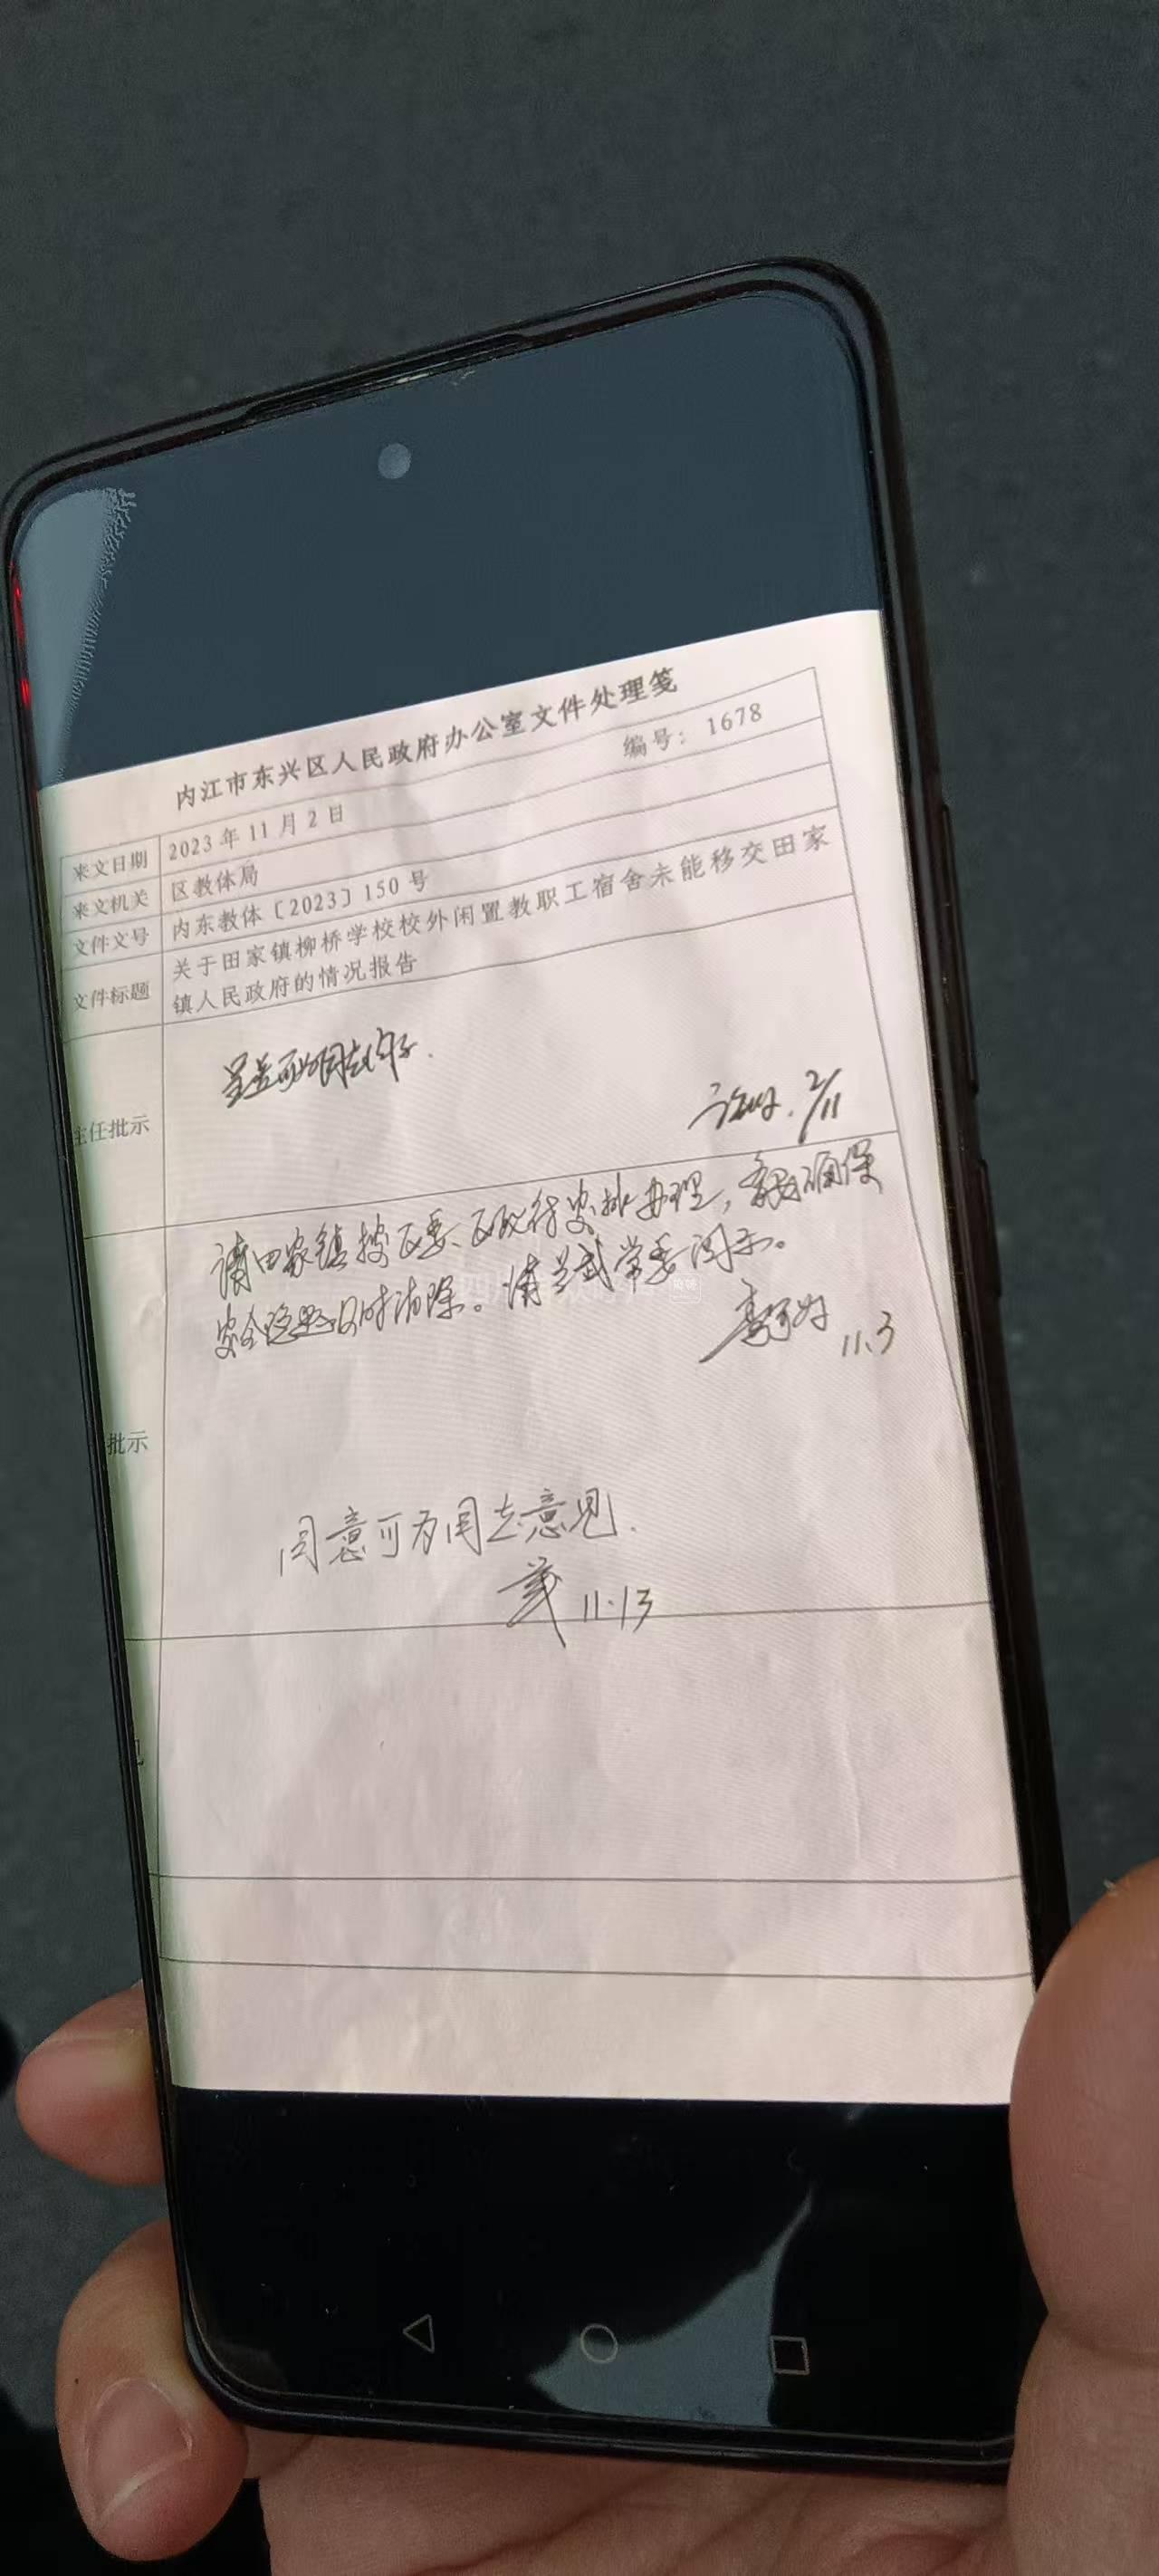 内江市东兴区人民政府办公室文件处理笺
编号：1678
来文日期 2023年11月2日
来文机关 区教体局
文件文号 内东教体〔2023〕150号
文件标题 关于田家镇柳桥学校校外闲置教职工宿舍未能移交田家
镇人民政府的情况报告
主任批示
呈 可为同志阅示.
2/11
批示
请田家镇按区委、区政府安排办理，确保
安全隐患及时消除。请兰武常委阅示。
11.3
同意可为同志意见.
武 11.13